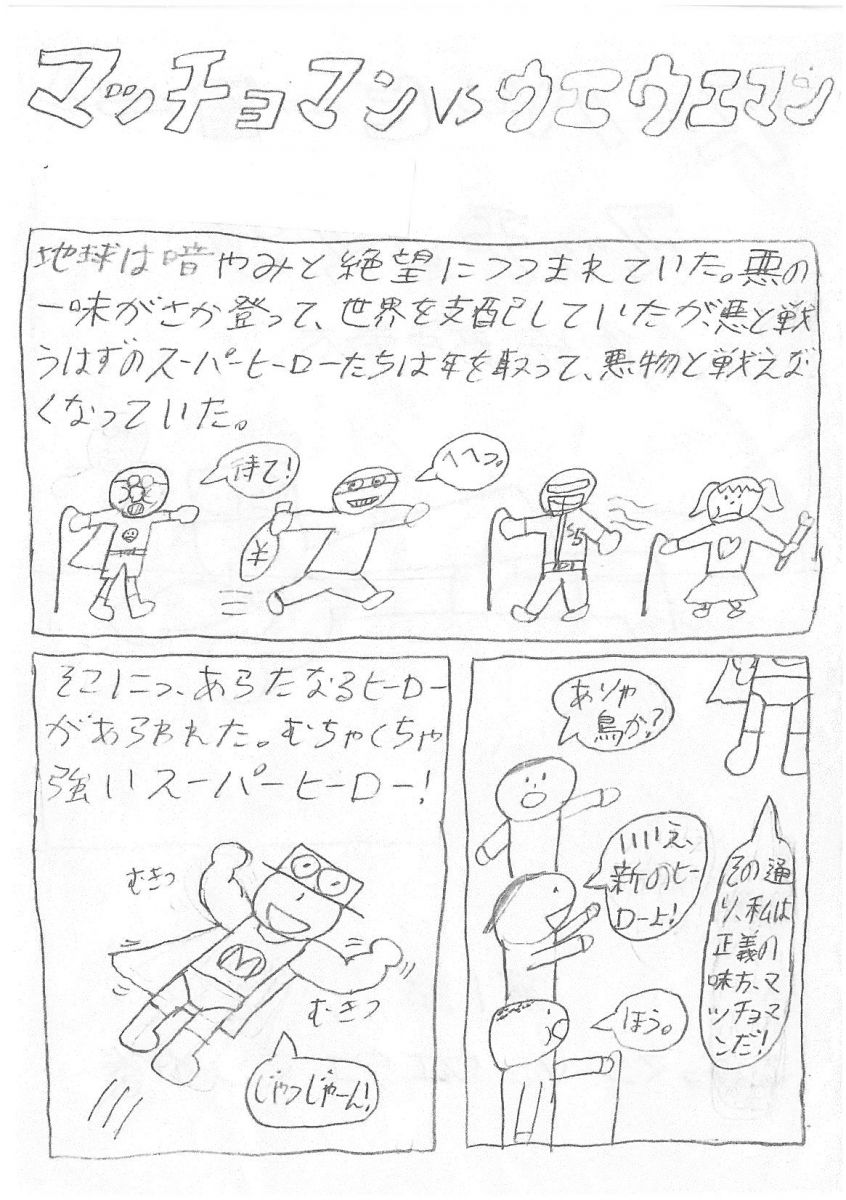 マッチョマン VS ウエウエマン
地球は暗やみと絶望につつまれていた。悪の
一味がさか登って、世界を支配していたが、悪と戦
うはずのスーパーヒーローたちは年を取って、悪物と戦えな
くなっていた。
待て!
へへっ。
¥
S5
そこにっ、あらたなるヒーロー
があらわれた。むちゃくちゃ
強いスーパーヒーロー!
むきっ
M
むきっ
じゃっじゃーん!
ありゃ
鳥か?
いいえ、
新のヒー
ロー上!
その通
り、私は
正義の
味方、マ
ッチョマ
ンだ!
ほう。